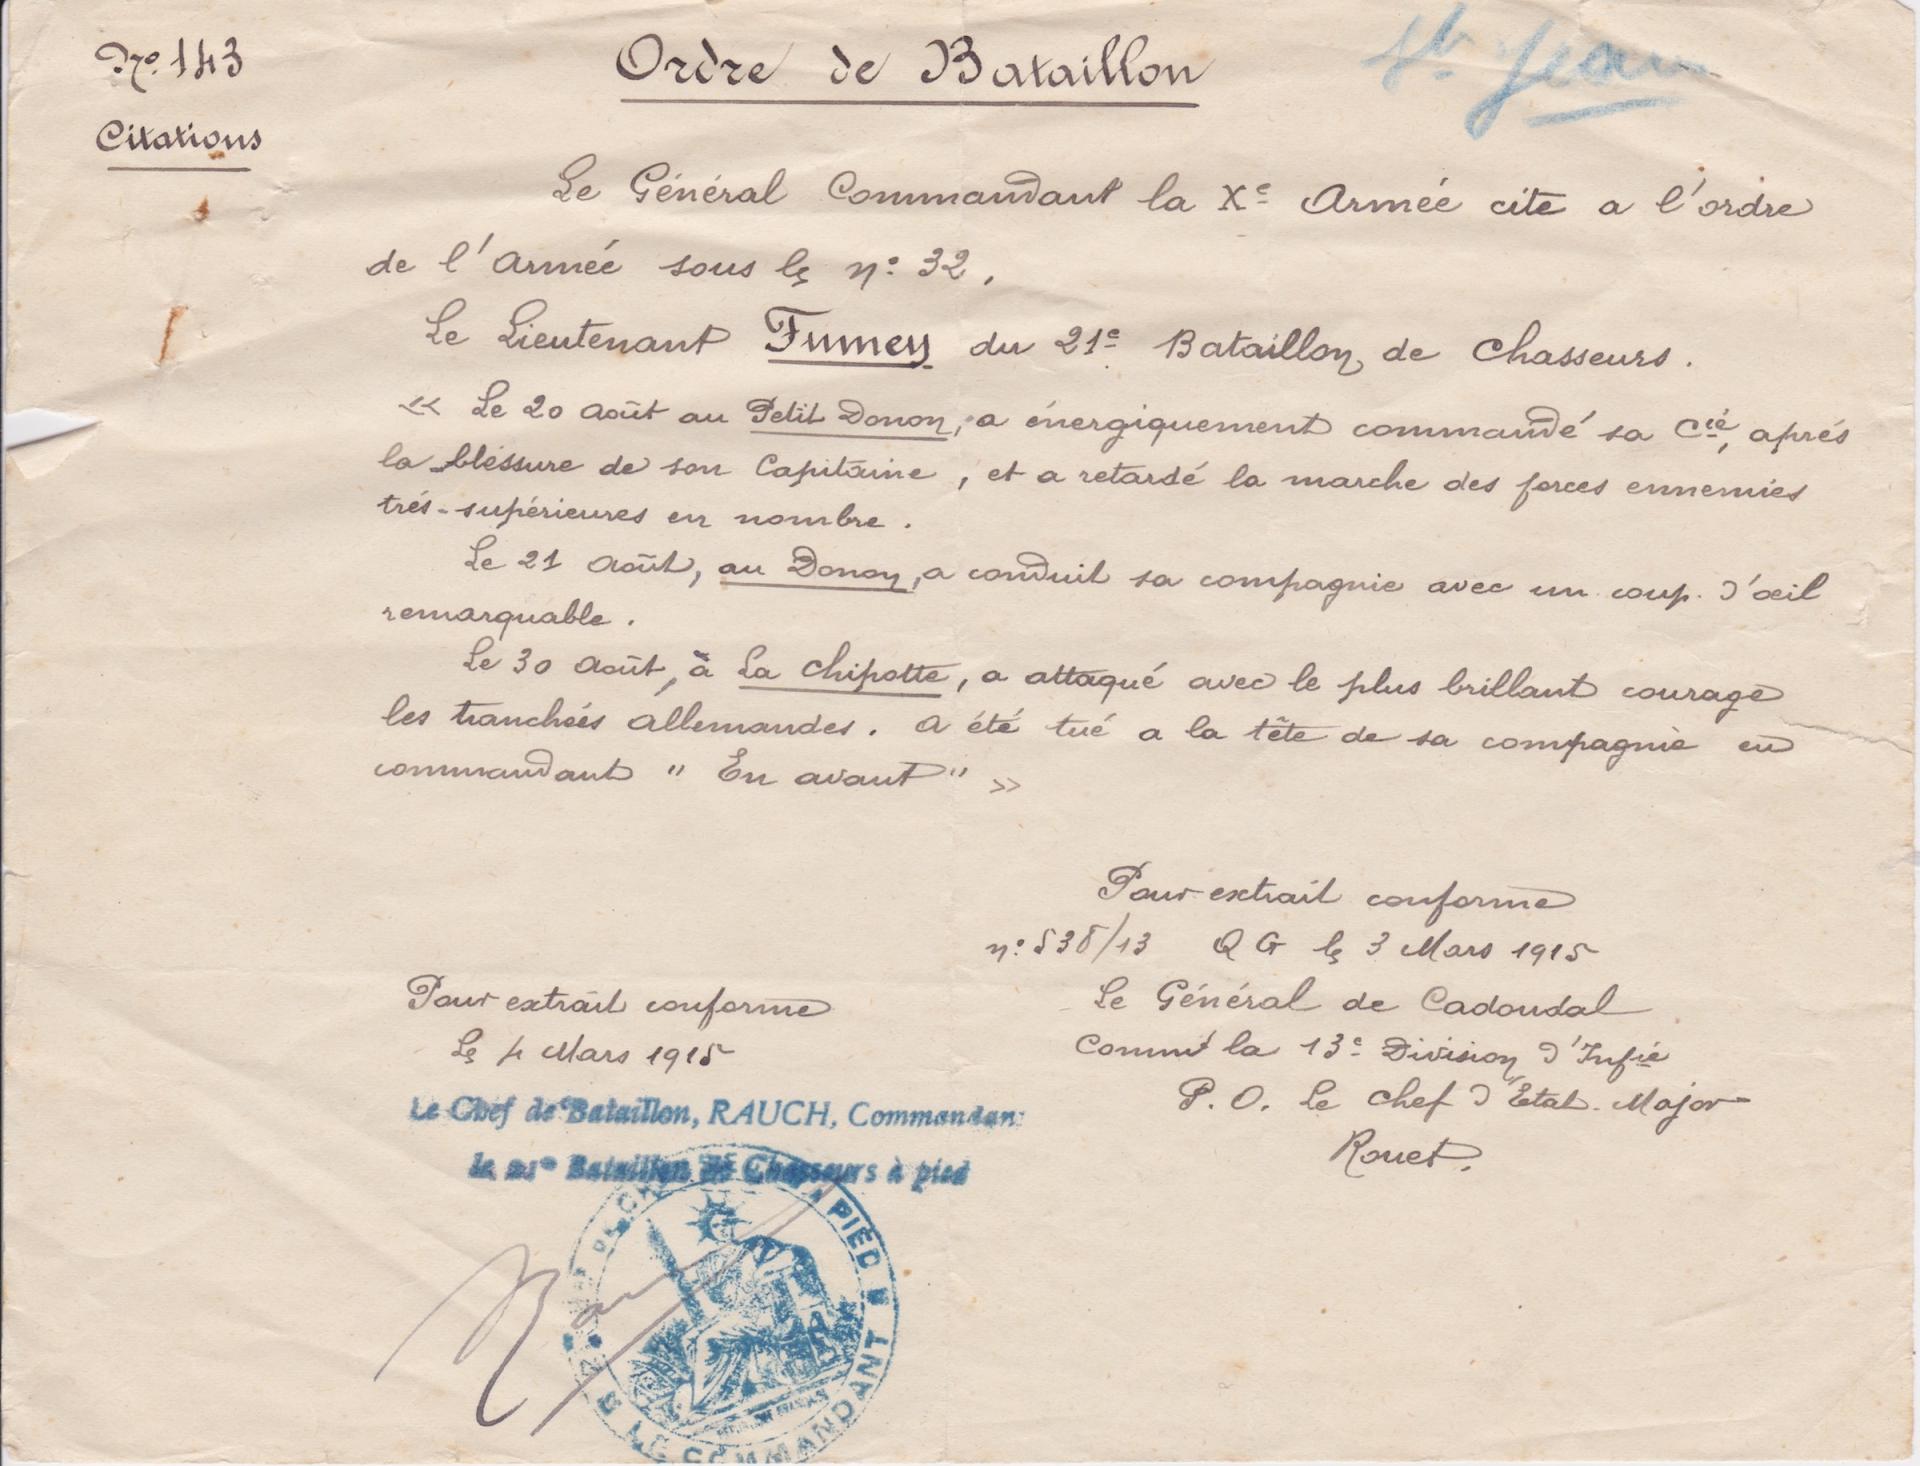 N°. 143
Ordre de Bataillon
St Jean
Citations
Le Général Commandant la Xe Armée cite a l'ordre
de l'Armée sous le n° 32.
Le Lieutenant Fumey du 21e Bataillon de Chasseurs.
« Le 20 Août au Petit Donon, a énergiquement commandé sa Cie, aprés
la bléssure de son Capitaine, et a retardé la marche des forces ennemies
trés-supérieures en nombre.
Le 21 Août, au Donon, a conduit sa compagnie avec un coup d'œil
remarquable.
Le 30 Août, à La Chipotte, a attaqué avec le plus brillant courage
les tranchées allemandes. A été tué a la tête de sa compagnie en
commandant " En avant " »
Pour extrait conforme
n° 538/13 QG le 3 Mars 1915
Le Général de Cadoudal
Commt la 13e Division d'Infie
P.O. Le Chef d'Etat-Major
Rouet.
Pour extrait conforme
Le 4 Mars 1915
Le Chef de Bataillon, RAUCH, Commandant
le 21e Bataillon de Chasseurs à pied
PIED
LE COMMANDANT